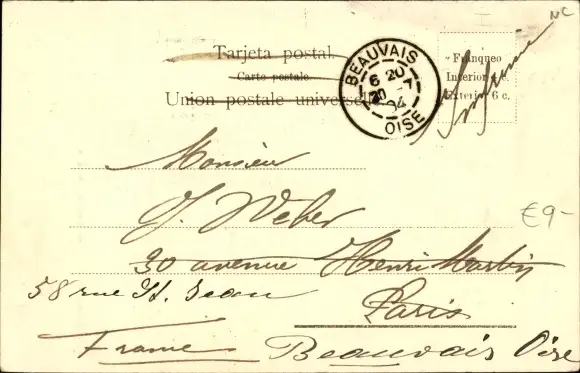 NC
Tarjeta postal.
Carte postale.
Union postale universelle
BEAUVAIS
6 20
20 -1
04
OISE
Franqueo
Interior c.
Exterior 6 c.
Imprimé
Monsieur
J. Weber
€9-
30 avenue Henri Martin
58 rue St. Jean
Paris
France Beauvais Oise